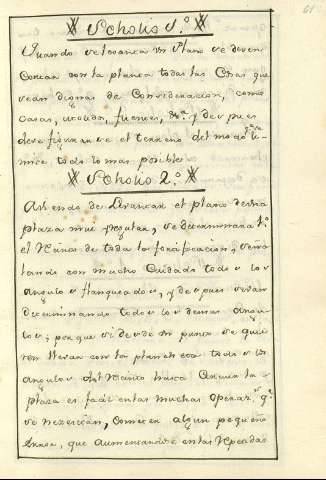 61
Scholio 1.º
Quando se levanta un Plano se deven
con la plancha todas las Cosas que
sean dignas de Consideracion, como
casas, fuentes, &.ª y despues
deve figurarse el terreno del modo q.e se
todo lo mas posible
Scholio 2.º
Haviendo de levantar el plano de una
plaza mui regular, se determinará 1.º
el Recinto de toda la fortificacion, señalando
con mucho Cuidado todos los
angulos flanqueados, y despues se van
determinando todos los demas angulos;
porque si desde un punto se quieren
llevar con la plancheta todos los
angulos del Recinto hasta la
plaza es facil en tantas muchas Operac.s q.e
se necesitan, cometer algun pequeño
error, que aumentandose en las